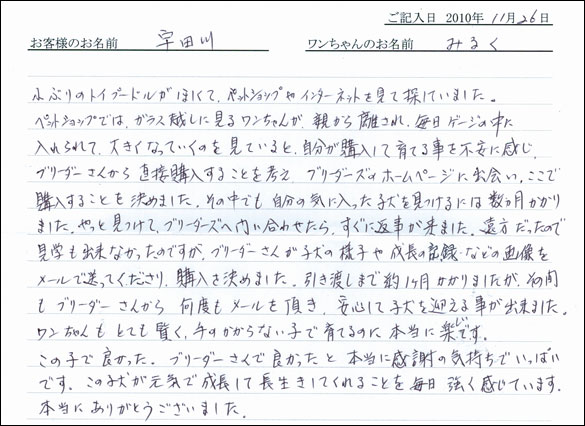 ご記入日 2010年 11月 26日
お客様のお名前 宇田川 ワンちゃんのお名前 みるく
小ぶりのトイプードルがほしくて、ペットショップやインターネットを見て探していました。
ペットショップでは、ガラス越しに見るワンちゃんが、親から離され、毎日ゲージの中に
入れられて、大きくなっていくのを見ていると、自分が購入して育てる事を不安に感じ、
ブリーダーさんから直接購入することを考え、ブリーダーズのホームページに出会い、ここで
購入することを決めました。その中でも自分の気に入った子犬を見つけるには数ヵ月かかり
ました。やっと見つけて、ブリーダーズへ問い合わせたら、すぐに返事が来ました。遠方だったので
見学も出来なかったのですが、ブリーダーさんが子犬の様子や成長の記録・などの画像を
メールで送ってくださり、購入を決めました。引き渡しまで約1ヶ月かかりましたが、その間
もブリーダーさんから何度もメールを頂き、安心して子犬を迎える事が出来ました。
ワンちゃんもとても賢く、手のかからない子で育てるのに本当に楽です。
この子で良かった。ブリーダーさんで良かったと本当に感謝の気持ちでいっぱい
です。この子犬が元気で成長して長生きしてくれることを毎日強く感じています。
本当にありがとうございました。